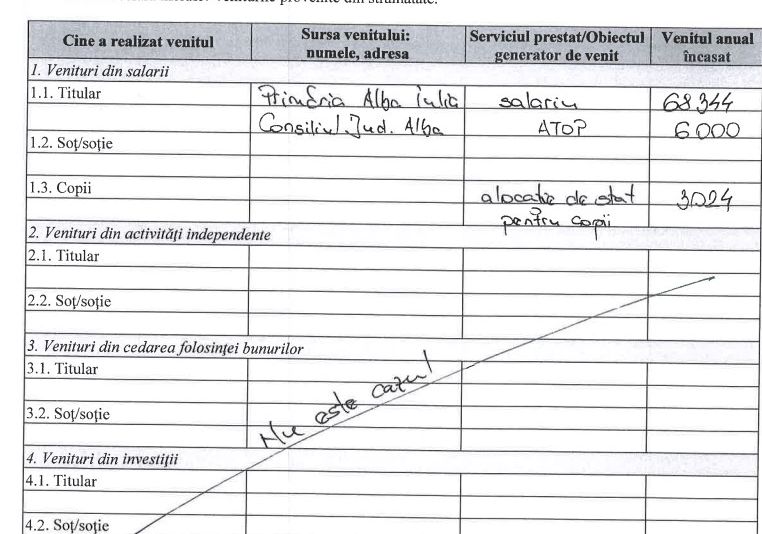 Cine a realizat venitul
Sursa venitului:
numele, adresa
Serviciul prestat/Obiectul
generator de venit
Venitul anual
încasat
1. Venituri din salarii
1.1. Titular Primăria Alba Iulia salariu 68344
Consiliul Jud. Alba ATOP 6000
1.2. Soț/soție
1.3. Copii alocație de stat 3024
pentru copii
2. Venituri din activități independente
2.1. Titular
2.2. Soț/soție
3. Venituri din cedarea folosinței bunurilor
3.1. Titular
Nu este cazul
3.2. Soț/soție
4. Venituri din investiții
4.1. Titular
4.2. Soț/soție